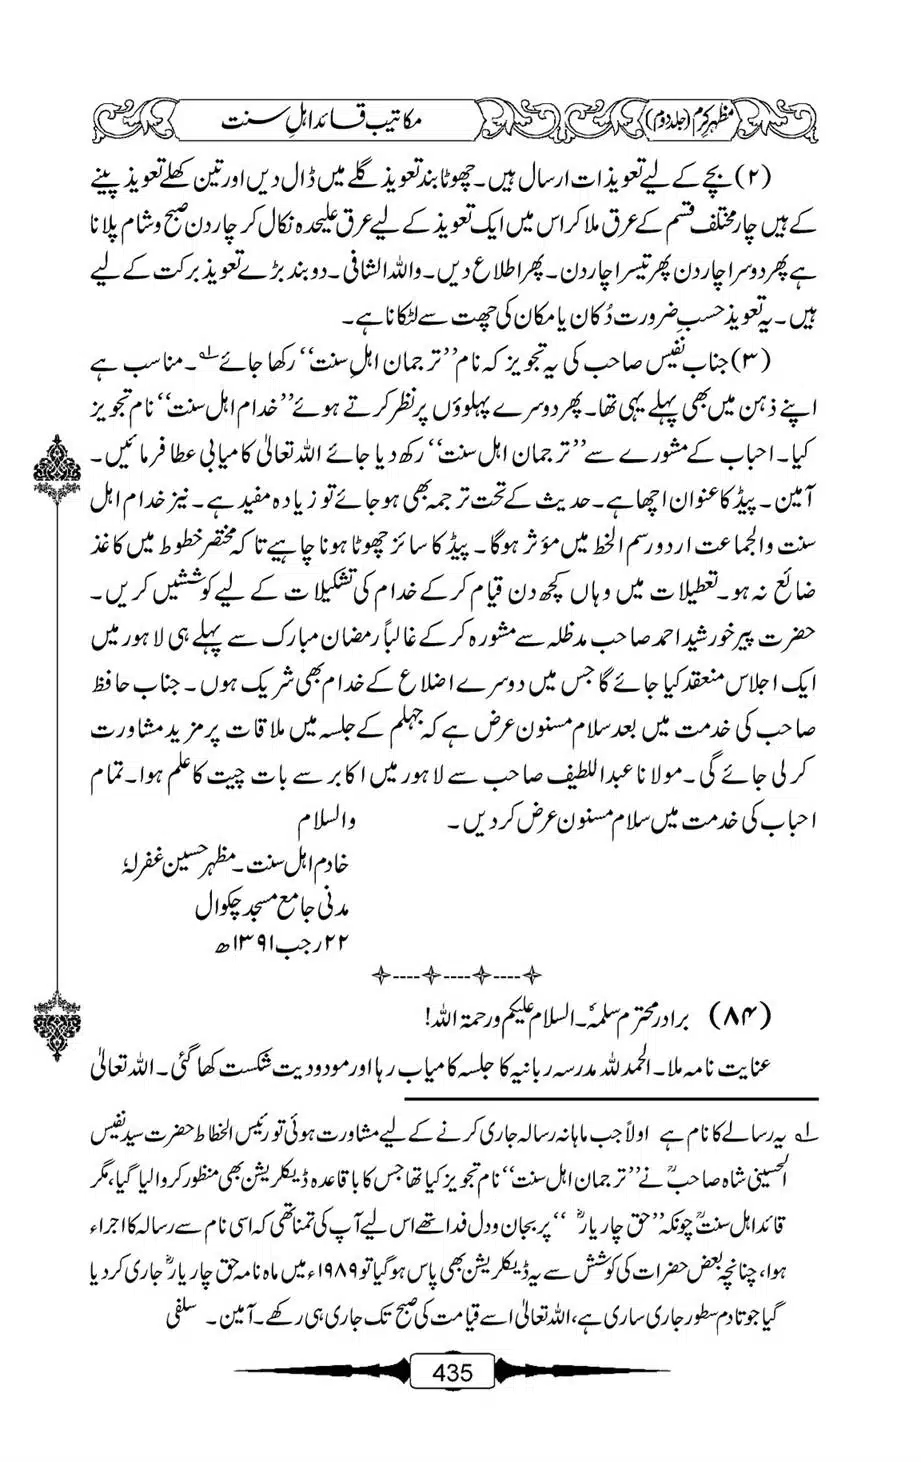 مظہر کرم (جلد دوم)
مکاتیب قائد اہل سنت
(۲) بچے کے لیے تعویذات ارسال ہیں۔ چھوٹا بند تعویذ گلے میں ڈال دیں اور تین کھلے تعویذ پینے
کے ہیں چار مختلف قسم کے عرق ملا کر اس میں ایک تعویذ کے لیے عرق علیحدہ نکال کر چار دن صبح و شام پلانا
ہے پھر دوسرا چار دن پھر تیسرا چار دن۔ پھر اطلاع دیں۔ واللہ الشافی۔ دو بند بڑے تعویذ برکت کے لیے
ہیں۔ یہ تعویذ حسبِ ضرورت دُکان یا مکان کی چھت سے لٹکانا ہے۔
(۳) جناب نفیس صاحب کی یہ تجویز کہ نام ’’ترجمان اہلِ سنت‘‘ رکھا جائے ۱؎۔ مناسب ہے
اپنے ذہن میں بھی پہلے یہی تھا۔ پھر دوسرے پہلوؤں پر نظر کرتے ہوئے ’’خدام اہل سنت‘‘ نام تجویز
کیا۔ احباب کے مشورے سے ’’ترجمان اہل سنت‘‘ رکھ دیا جائے اللہ تعالیٰ کامیابی عطا فرمائیں۔
آمین۔ پیڈ کا عنوان اچھا ہے۔ حدیث کے تحت ترجمہ بھی ہو جائے تو زیادہ مفید ہے۔ نیز خدام اہل
سنت والجماعت اردو رسم الخط میں مؤثر ہوگا۔ پیڈ کا سائز چھوٹا ہونا چاہیے تاکہ مختصر خطوط میں کاغذ
ضائع نہ ہو۔ تعطیلات میں وہاں کچھ دن قیام کر کے خدام کی تشکیلات کے لیے کوششیں کریں۔
حضرت پیر خورشید احمد صاحب مدظلہ سے مشورہ کر کے غالباً رمضان مبارک سے پہلے ہی لاہور میں
ایک اجلاس منعقد کیا جائے گا جس میں دوسرے اضلاع کے خدام بھی شریک ہوں۔ جناب حافظ
صاحب کی خدمت میں بعد سلام مسنون عرض ہے کہ جہلم کے جلسہ میں ملاقات پر مزید مشاورت
کر لی جائے گی۔ مولانا عبداللطیف صاحب سے لاہور میں اکابر سے بات چیت کا علم ہوا۔ تمام
احباب کی خدمت میں سلام مسنون عرض کر دیں۔ والسلام
خادم اہل سنت۔ مظہر حسین غفرلہٗ
مدنی جامع مسجد چکوال
۲۲ رجب ۱۳۹۱ھ
(۸۴) برادر محترم سلمہٗ۔ السلام علیکم ورحمۃ اللہ!
عنایت نامہ ملا۔ الحمد للہ مدرسہ ربانیہ کا جلسہ کامیاب رہا اور مودودیت شکست کھا گئی۔ اللہ تعالیٰ
۱؎ یہ رسالے کا نام ہے اولاً جب ماہانہ رسالہ جاری کرنے کے لیے مشاورت ہوئی تو رئیس الخطاط حضرت سید نفیس
الحسینی شاہ صاحبؒ نے ’’ترجمان اہل سنت‘‘ نام تجویز کیا تھا جس کا باقاعدہ ڈیکلریشن بھی منظور کروا لیا گیا، مگر
قائد اہل سنتؒ چونکہ ’’حق چار یارؓ‘‘ پر بجان و دل فدا تھے اس لیے آپ کی تمنا تھی کہ اسی نام سے رسالہ کا اجراء
ہوا، چنانچہ بعض حضرات کی کوشش سے یہ ڈیکلریشن بھی پاس ہو گیا تو ۱۹۸۹ء میں ماہ نامہ حق چار یارؓ جاری کر دیا
گیا جو تا دم سطور جاری ساری ہے، اللہ تعالیٰ اسے قیامت کی صبح تک جاری ہی رکھے۔ آمین۔ سلفی
435